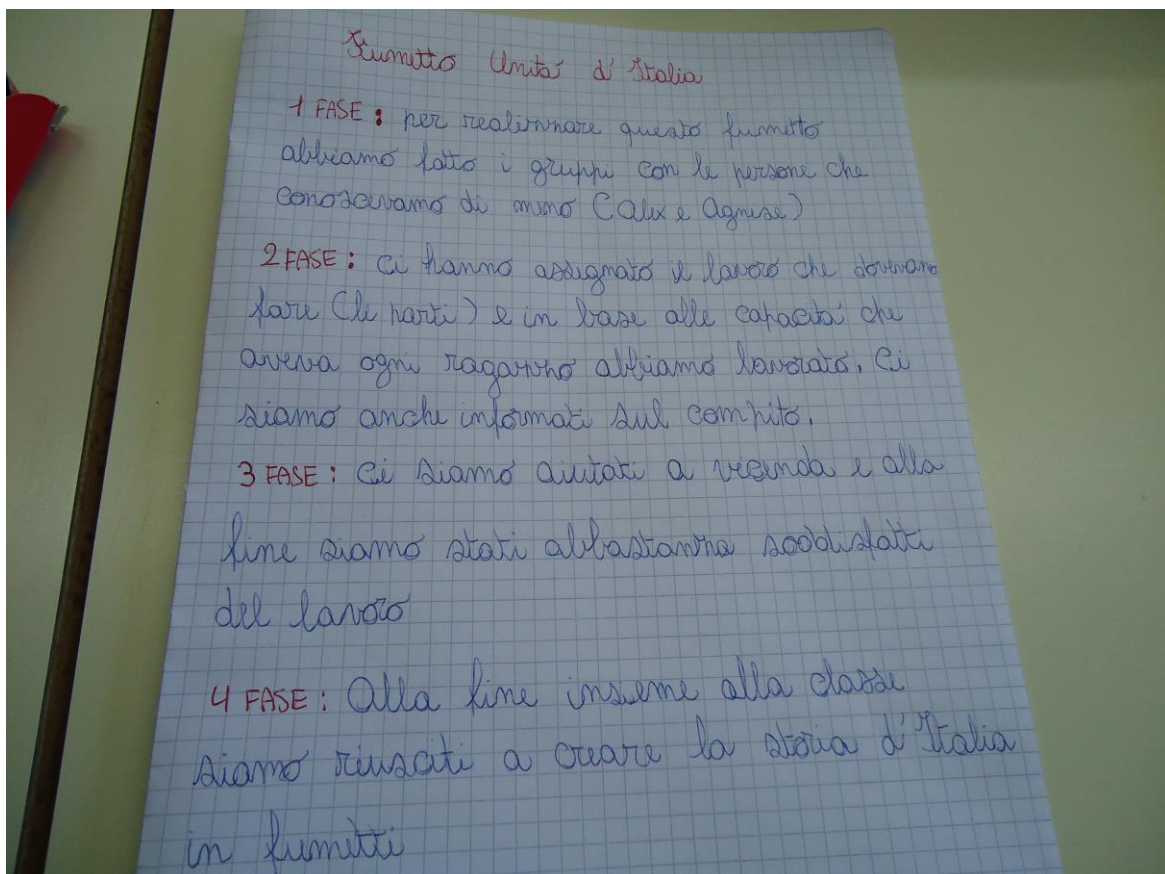 Fumetto Unita' d'Italia
1 FASE: per realizzare questo fumetto
abbiamo fatto i gruppi con le persone che
conoscevamo di meno (Alex e Agnese)
2 FASE: ci hanno assegnato il lavoro che dovevamo
fare (le parti) e in base alle capacita' che
aveva ogni ragazzo abbiamo lavorato. Ci
siamo anche informati sul compito.
3 FASE: Ci siamo aiutati a vicenda e alla
fine siamo stati abbastanza soddisfatti
del lavoro
4 FASE: Alla fine insieme alla classe
siamo riusciti a creare la storia d'Italia
in fumetti